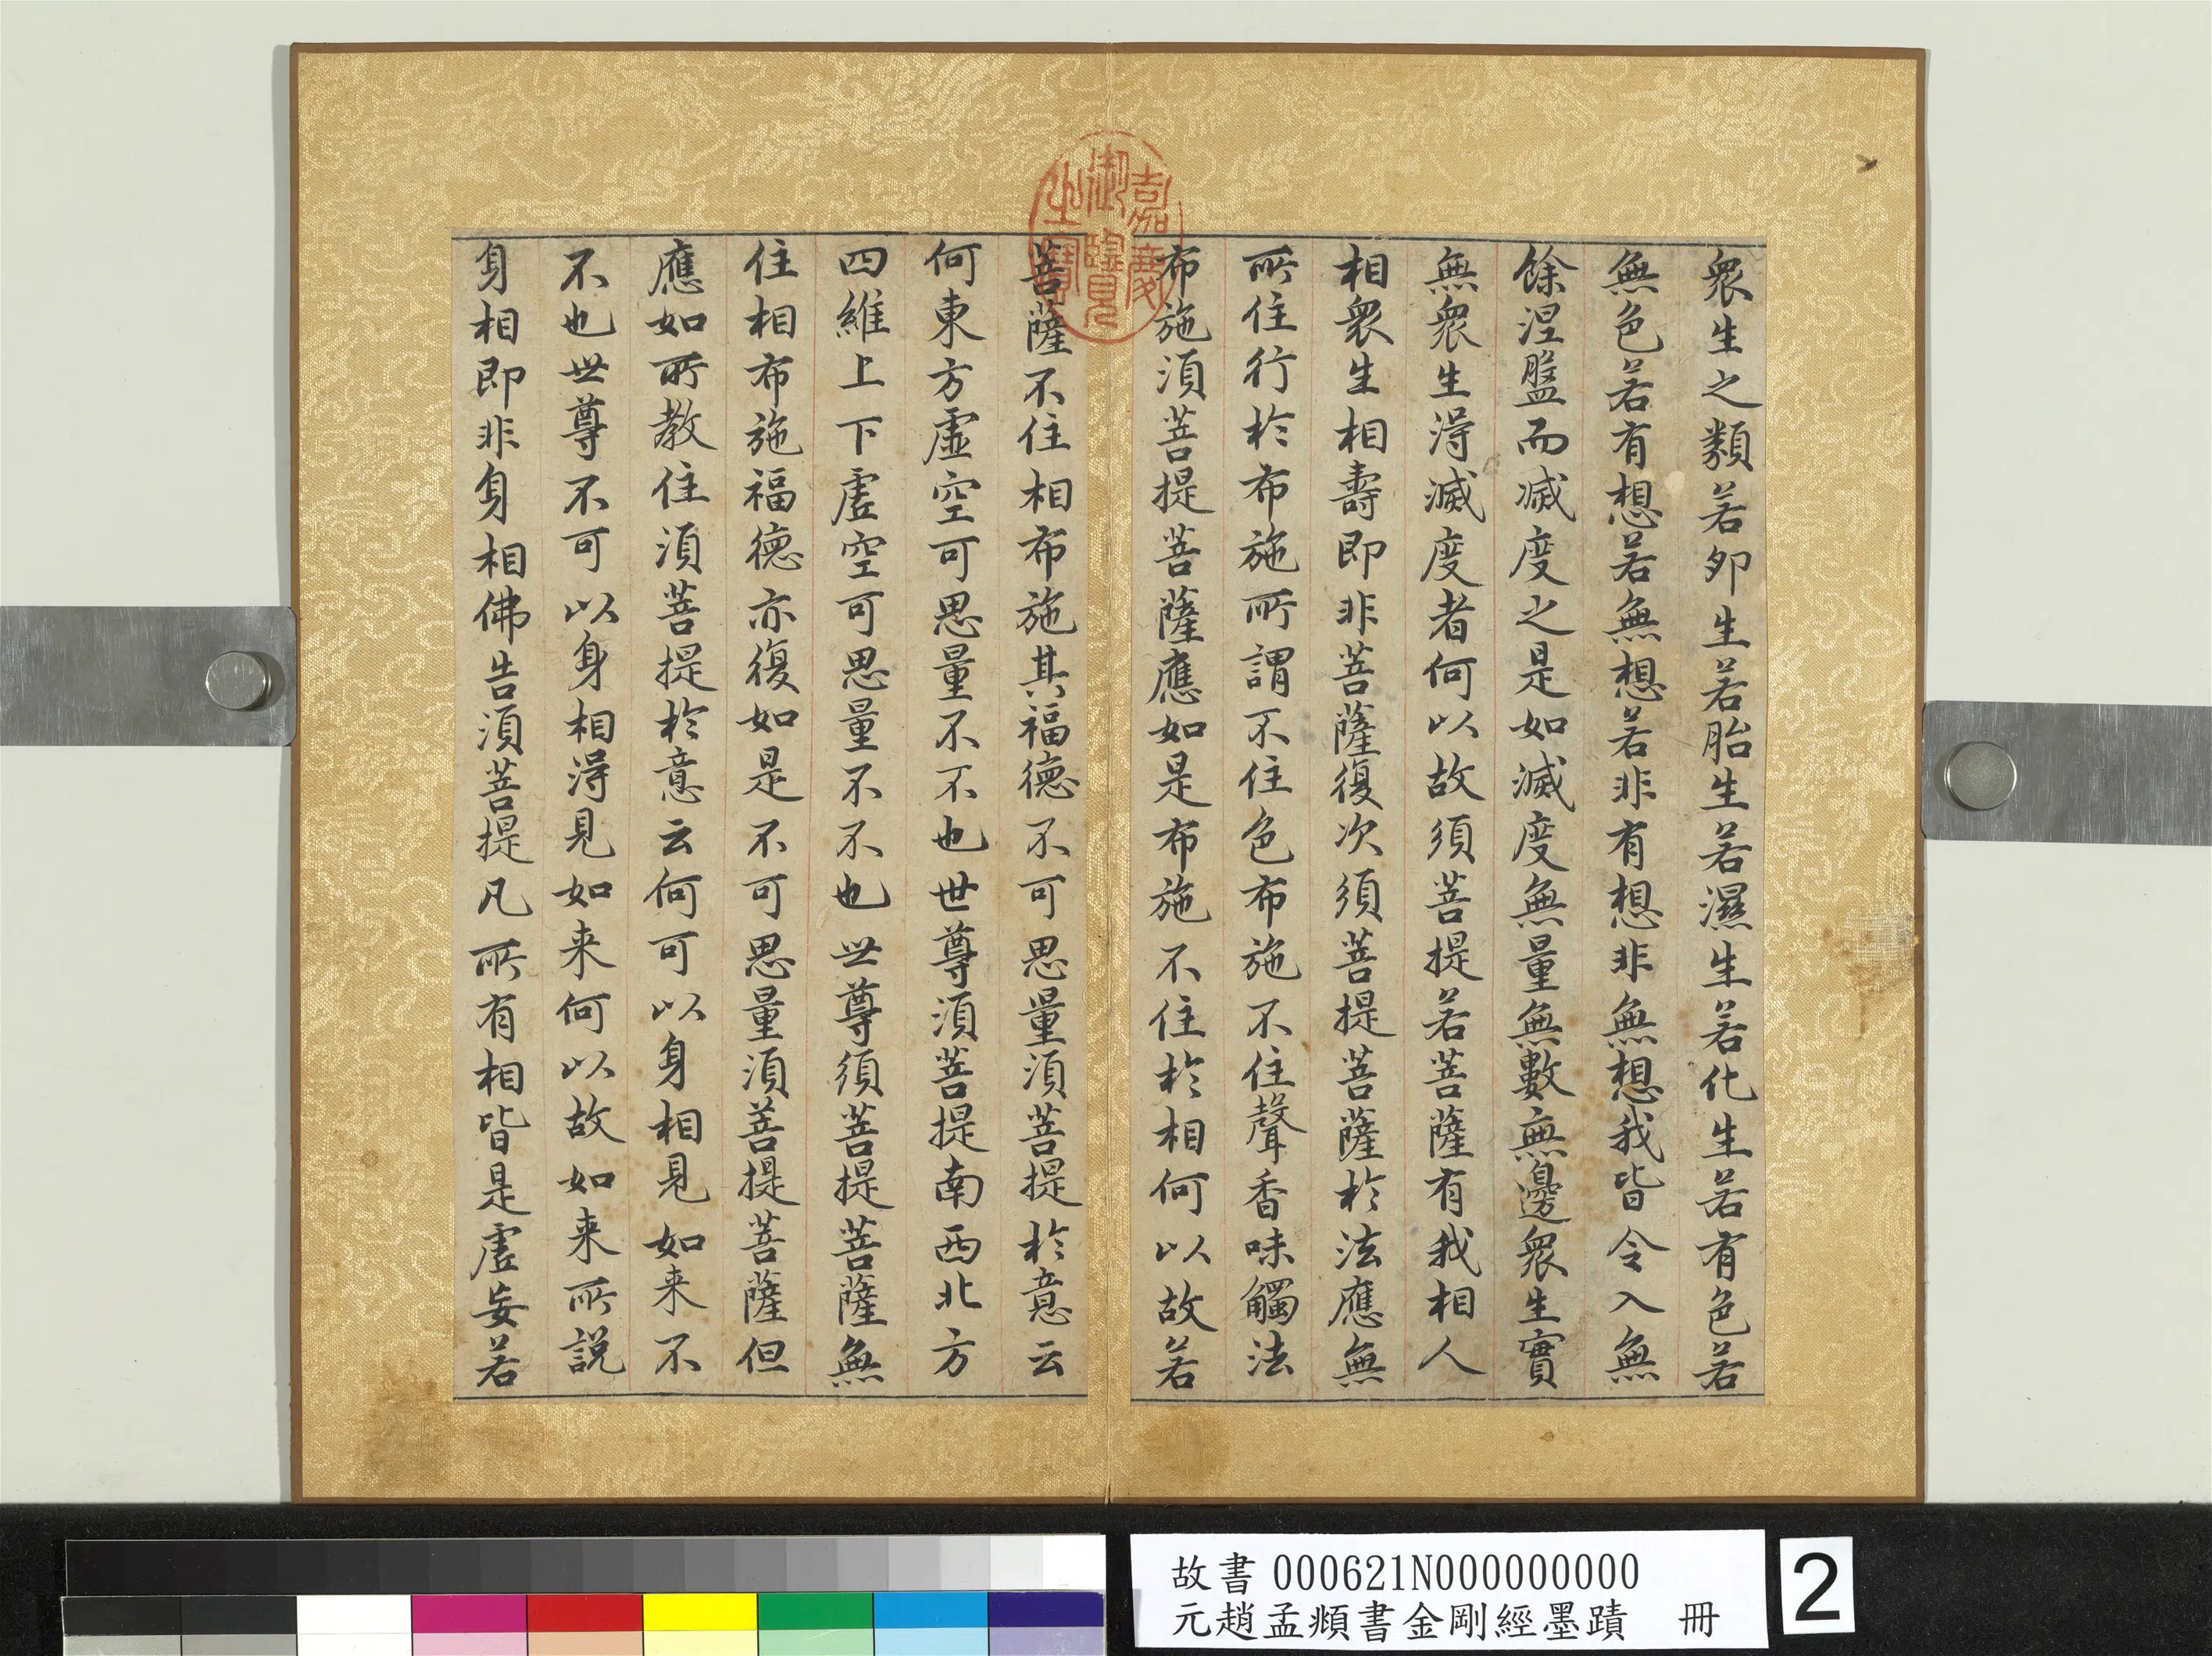 衆生之類若夘生若胎生若濕生若化生若有色若
無色若有想若無想若非有想非無想我皆令入無
餘涅盤而滅度之是如滅度無量無數無邊衆生實
無衆生得滅度者何以故須菩提若菩薩有我相人
相衆生相壽即非菩薩復次須菩提菩薩於法應無
所住行於布施所謂不住色布施不住聲香味觸法
布施須菩提菩薩應如是布施不住於相何以故若
菩薩不住相布施其福德不可思量須菩提於意云
何東方虛空可思量不不也世尊須菩提南西北方
四維上下虛空可思量不不也世尊須菩提菩薩無
住相布施福德亦復如是不可思量須菩提菩薩但
應如所教住須菩提於意云何可以身相見如来不
不也世尊不可以身相得見如来何以故如来所說
身相即非身相佛告須菩提凡所有相皆是虛妄若
嘉慶
御覽
之寶
故書 000621N000000000
元趙孟頫書金剛經墨蹟 冊
2